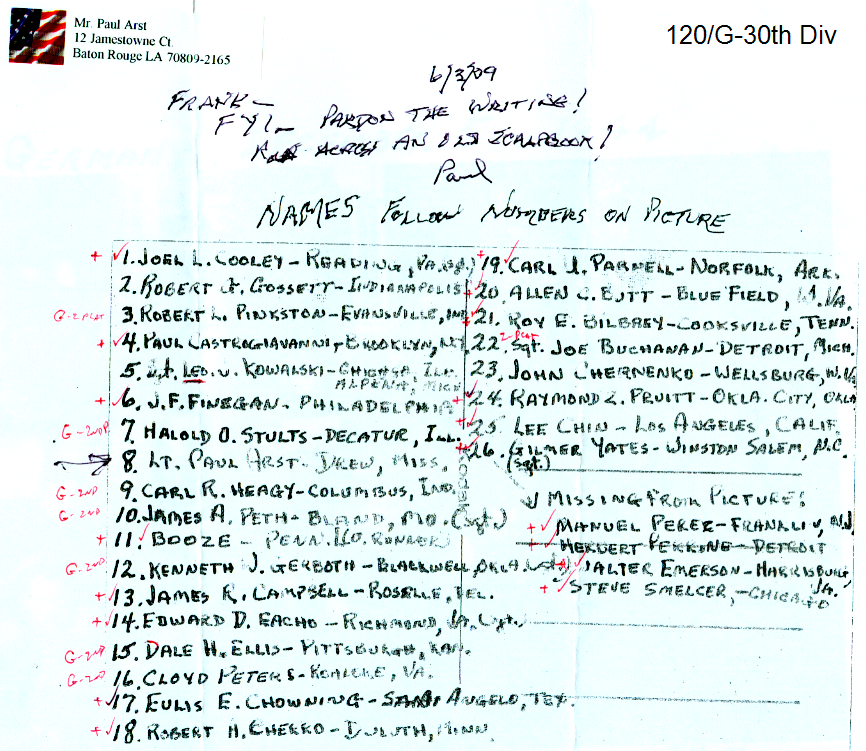 Mr. Paul Arst
12 Jamestowne Ct.
Baton Rouge LA 70809-2165
120/G-30th Div
6/3/09
FRANK-
FYI- PARDON THE WRITING!
RAN ACROSS AN OLD SCRAPBOOK!
Paul
NAMES FOLLOW NUMBERS ON PICTURE
+ ✓ 1. JOEL L. COOLEY - READING, PA.
2. ROBERT J. GOSSETT - INDIANAPOLIS
G-2 PLAT 3. ROBERT L. PINKSTON - EVANSVILLE, IND
+ ✓ 4. PAUL CASTROGIAVANNI - BROOKLYN, N.Y.
5. Lt. LEO. J. KOWALSKI - CHICAGO, ILL.
ALPENA, MICH
+ ✓ 6. J.F. FINEGAN - PHILADELPHIA
G-2ND P 7. HALOLD O. STULTS - DECATUR, ILL.
8. LT. PAUL ARST - DREW, MISS.
G-2ND 9. CARL R. HEAGY - COLUMBUS, IND.
G-2ND 10. JAMES A. PETH - BLAND, MO. (Sgt.)
+ ✓ 11. BOOZE - PENN. (CO. RUNNER)
G-2ND 12. KENNETH J. GERBOTH - BLACKWELL, OKLA.
+ ✓ 13. JAMES R. CAMPSELL - ROSELLE, DEL.
+ ✓ 14. EDWARD D. EACHO - RICHMOND, VA. (Sgt.)
G-2ND 15. DALE H. ELLIS - PITTSBURGH, KAN.
G-2D 16. CLOYD PETERS - ROANOKE, VA.
+ ✓ 17. EULIS E. CHOWNING - SAN ANGELO, TEX.
+ ✓ 18. ROBERT H. CHERRO - DULUTH, MINN.
+ ✓ 19. CARL J. PARNELL - NORFOLK, ARK.
20. ALLEN C. BUTT - BLUE FIELD, W. VA.
21. ROY E. BILBREY - COOKSVILLE, TENN.
2-PLAT
22. Sgt. JOE BUCHANAN - DETROIT, MICH.
23. JOHN CHERNENKO - WELLSBURG, W. VA
+ ✓ 24. RAYMOND L. PRUITT - OKLA. CITY, OKLA
+ ✓ 25. LEE CHIN - LOS ANGELES, CALIF.
+ ✓ 26. GILMER YATES - WINSTON SALEM, N.C.
(Sgt.)
MISSING FROM PICTURE:
+ ✓ MANUEL PERER - FRANKLIN, N.J.
+ ✓ HERBERT PERRINE - DETROIT
+ ✓ WALTER EMERSON - HARRISBURG,
PA.
+ ✓ STEVE SMELCER, - CHICAGO